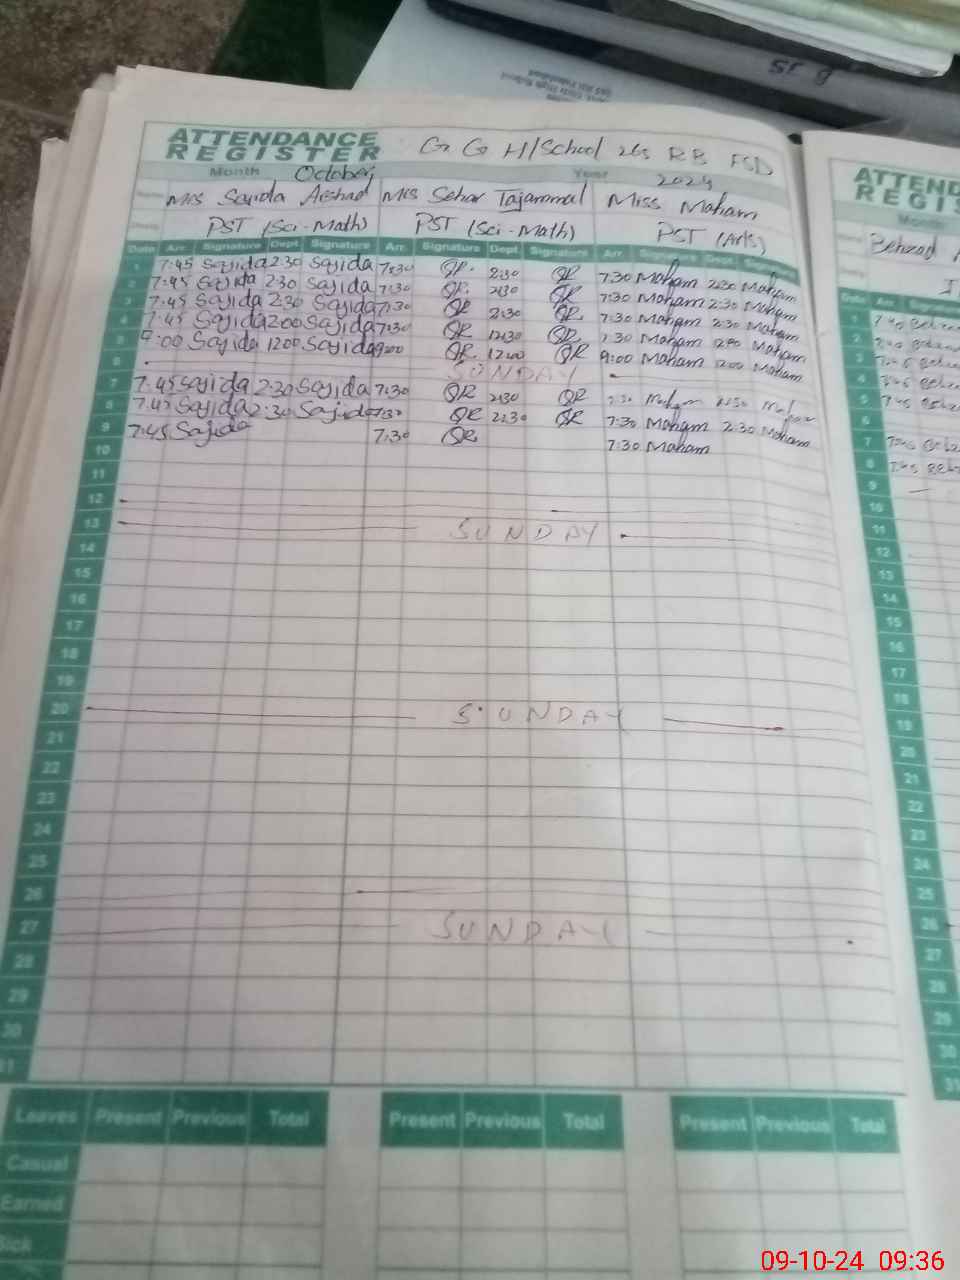 SF 8
ATTENDANCE REGISTER G G H/School 265 RB FSD
Month October Year 2024
Mrs Sajida Arshad Mrs Sehar Tajammal Miss Maham
PST (Sci-Math) PST (Sci-Math) PST (Arts)
Date Arr. Signature Dept. Signature Arr. Signature Dept. Signature Arr. Signature Dept. Signature
1 7:45 Sajida 2:30 Sajida 7:30 2:30 7:30 Maham 2:30 Maham
2 7:45 Sajida 2:30 Sajida 7:30 2:30 7:30 Maham 2:30 Maham
3 7:45 Sajida 2:30 Sajida 7:30 2:30 7:30 Maham 2:30 Maham
4 7:45 Sajida 12:00 Sajida 7:30 12:30 7:30 Maham Maham
5 9:00 Sajida 12:00 Sajida 9:00 12:00 9:00 Maham 12:00 Maham
6 SUNDAY
7 7:45 Sajida 2:30 Sajida 7:30 2:30 7:30 Maham Maham
8 7:45 Sajida 2:30 Sajida 7:30 2:30 7:30 Maham 2:30 Maham
9 7:45 Sajida 7:30 7:30 Maham
10
11
12
13 SUNDAY
14
15
16
17
18
19
20 SUNDAY
21
22
23
24
25
26
27 SUNDAY
28
29
30
31
Leaves Present Previous Total Present Previous Total Present Previous Total
Casual
Earned
Sick
ATTEND
REGIS
Month
Behzad
Date Arr.
1 7:45 Behza
2 7:45 Behza
3 7:45 Behza
4 7:45 Behza
5 7:45 Behza
6
7 7:45 Behza
8 7:45 Behza
9
10
11
12
13
14
15
16
17
18
19
20
21
22
23
24
25
26
27
28
29
30
31
09-10-24 09:36